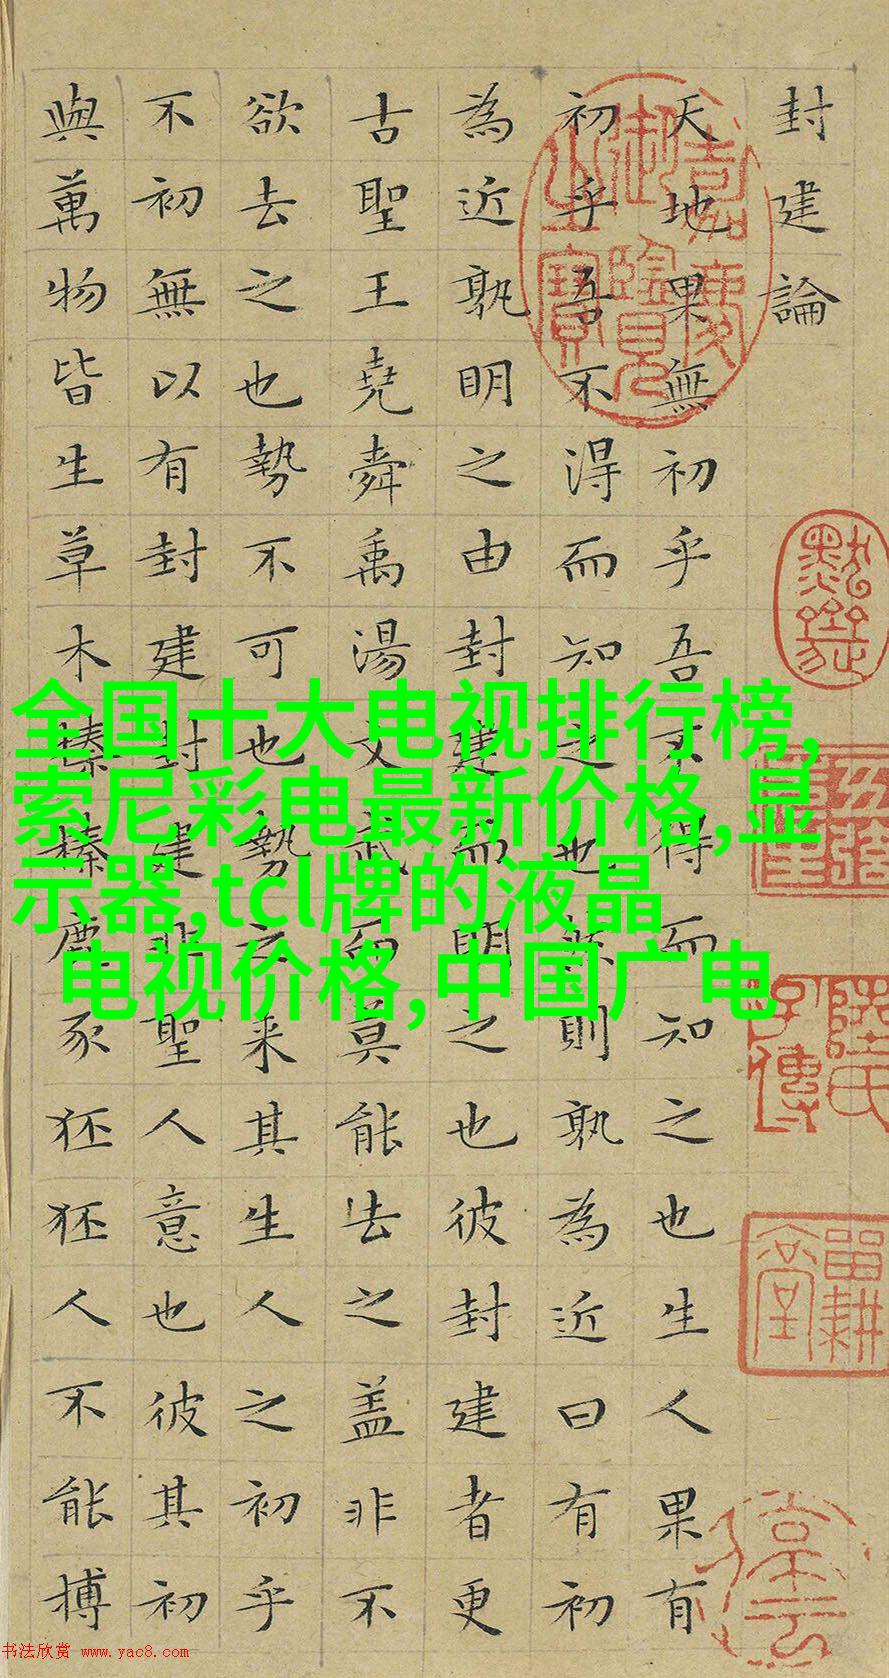 封建論
天地果無初乎吾不得而知之也生人果有
初乎吾不得而知之也然則孰為近曰有初
為近孰明之由封建而明之也彼封建者更
古聖王堯舜禹湯文武而莫能去之盖非不
欲去之也勢不可也勢之来其生人之初乎
不初無以有封建封建非聖人意也彼其初
與萬物皆生草木榛榛鹿豕狉狉人不能搏
嘉慶御覽之寶
陸氏子傳
畱耕堂
全国十大电视排行榜,
索尼彩电最新价格,显
示器,tcl牌的液晶
电视价格,中国广电
书法欣赏 www.yac8.com